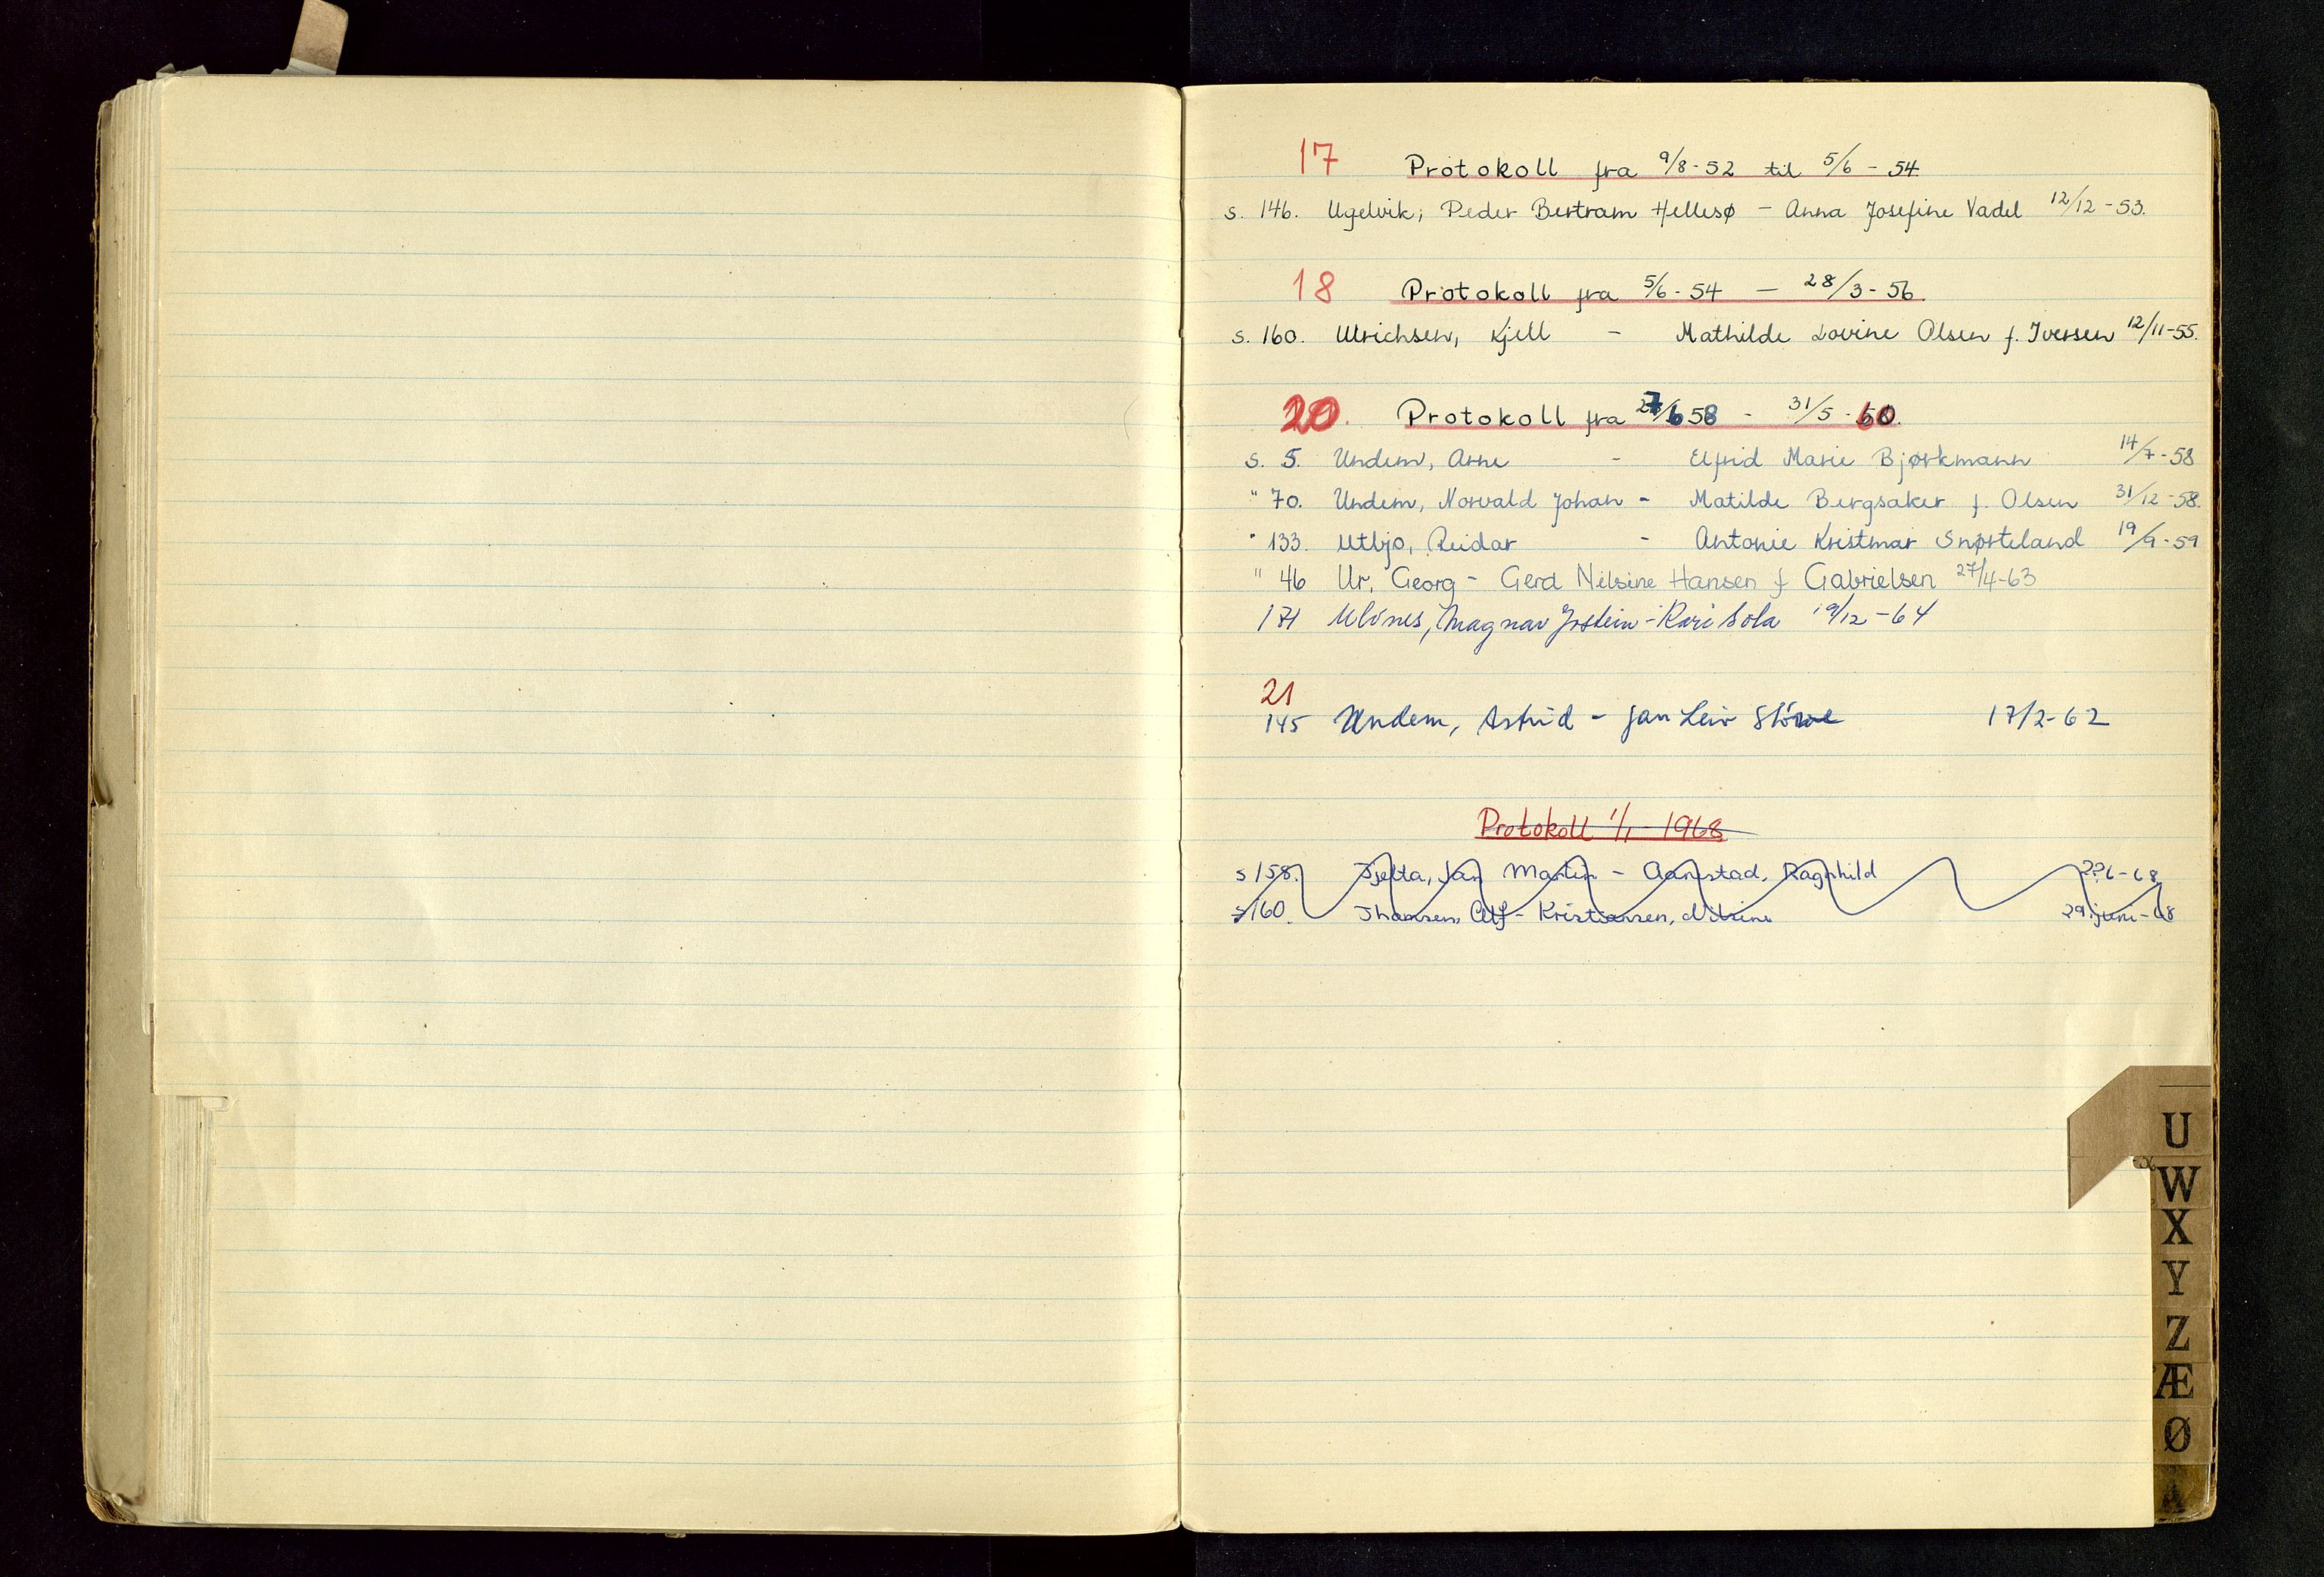 17 Protokoll fra 9/8-52 til 5/6 - 54
s. 146. Ugelvik; Peder Bertram Hellesø - Anna Josefine Vadel 12/12-53.
18 Protokoll fra 5/6-54 — 28/3-56.
s. 160. Ulrichsen, Kjell - Mathilde Lovine Olsen f. Iversen 12/11-55.
20. Protokoll fra 27/6 58 - 31/5-60.
s. 5. Undem, Arne - Elfrid Marie Bjørkmann 14/7-58
" 70. Undem, Norvald Johan - Matilde Bergsaker f. Olsen 31/12-58.
" 133. Utbjo, Reidar - Antonie Kristmar Snørteland 19/9-59
" 46 Ur, Georg - Gerd Nilsine Hansen f Gabrielsen 27/4-63
171 Ulvnes, Magnar Jostein - Kari Sola 19/12-64
21
145 Undem, Astrid - Jan Leiv 17/2-62
Protokoll 1/1-1968
s 158. Tjelta, Jan Martin - Aarrestad, Ragnhild -68
s 160. Thomsen, Alf - Kristiansen, Nilsine 29. juni-68
U
W
X
Y
Z
Æ
Ø
Å